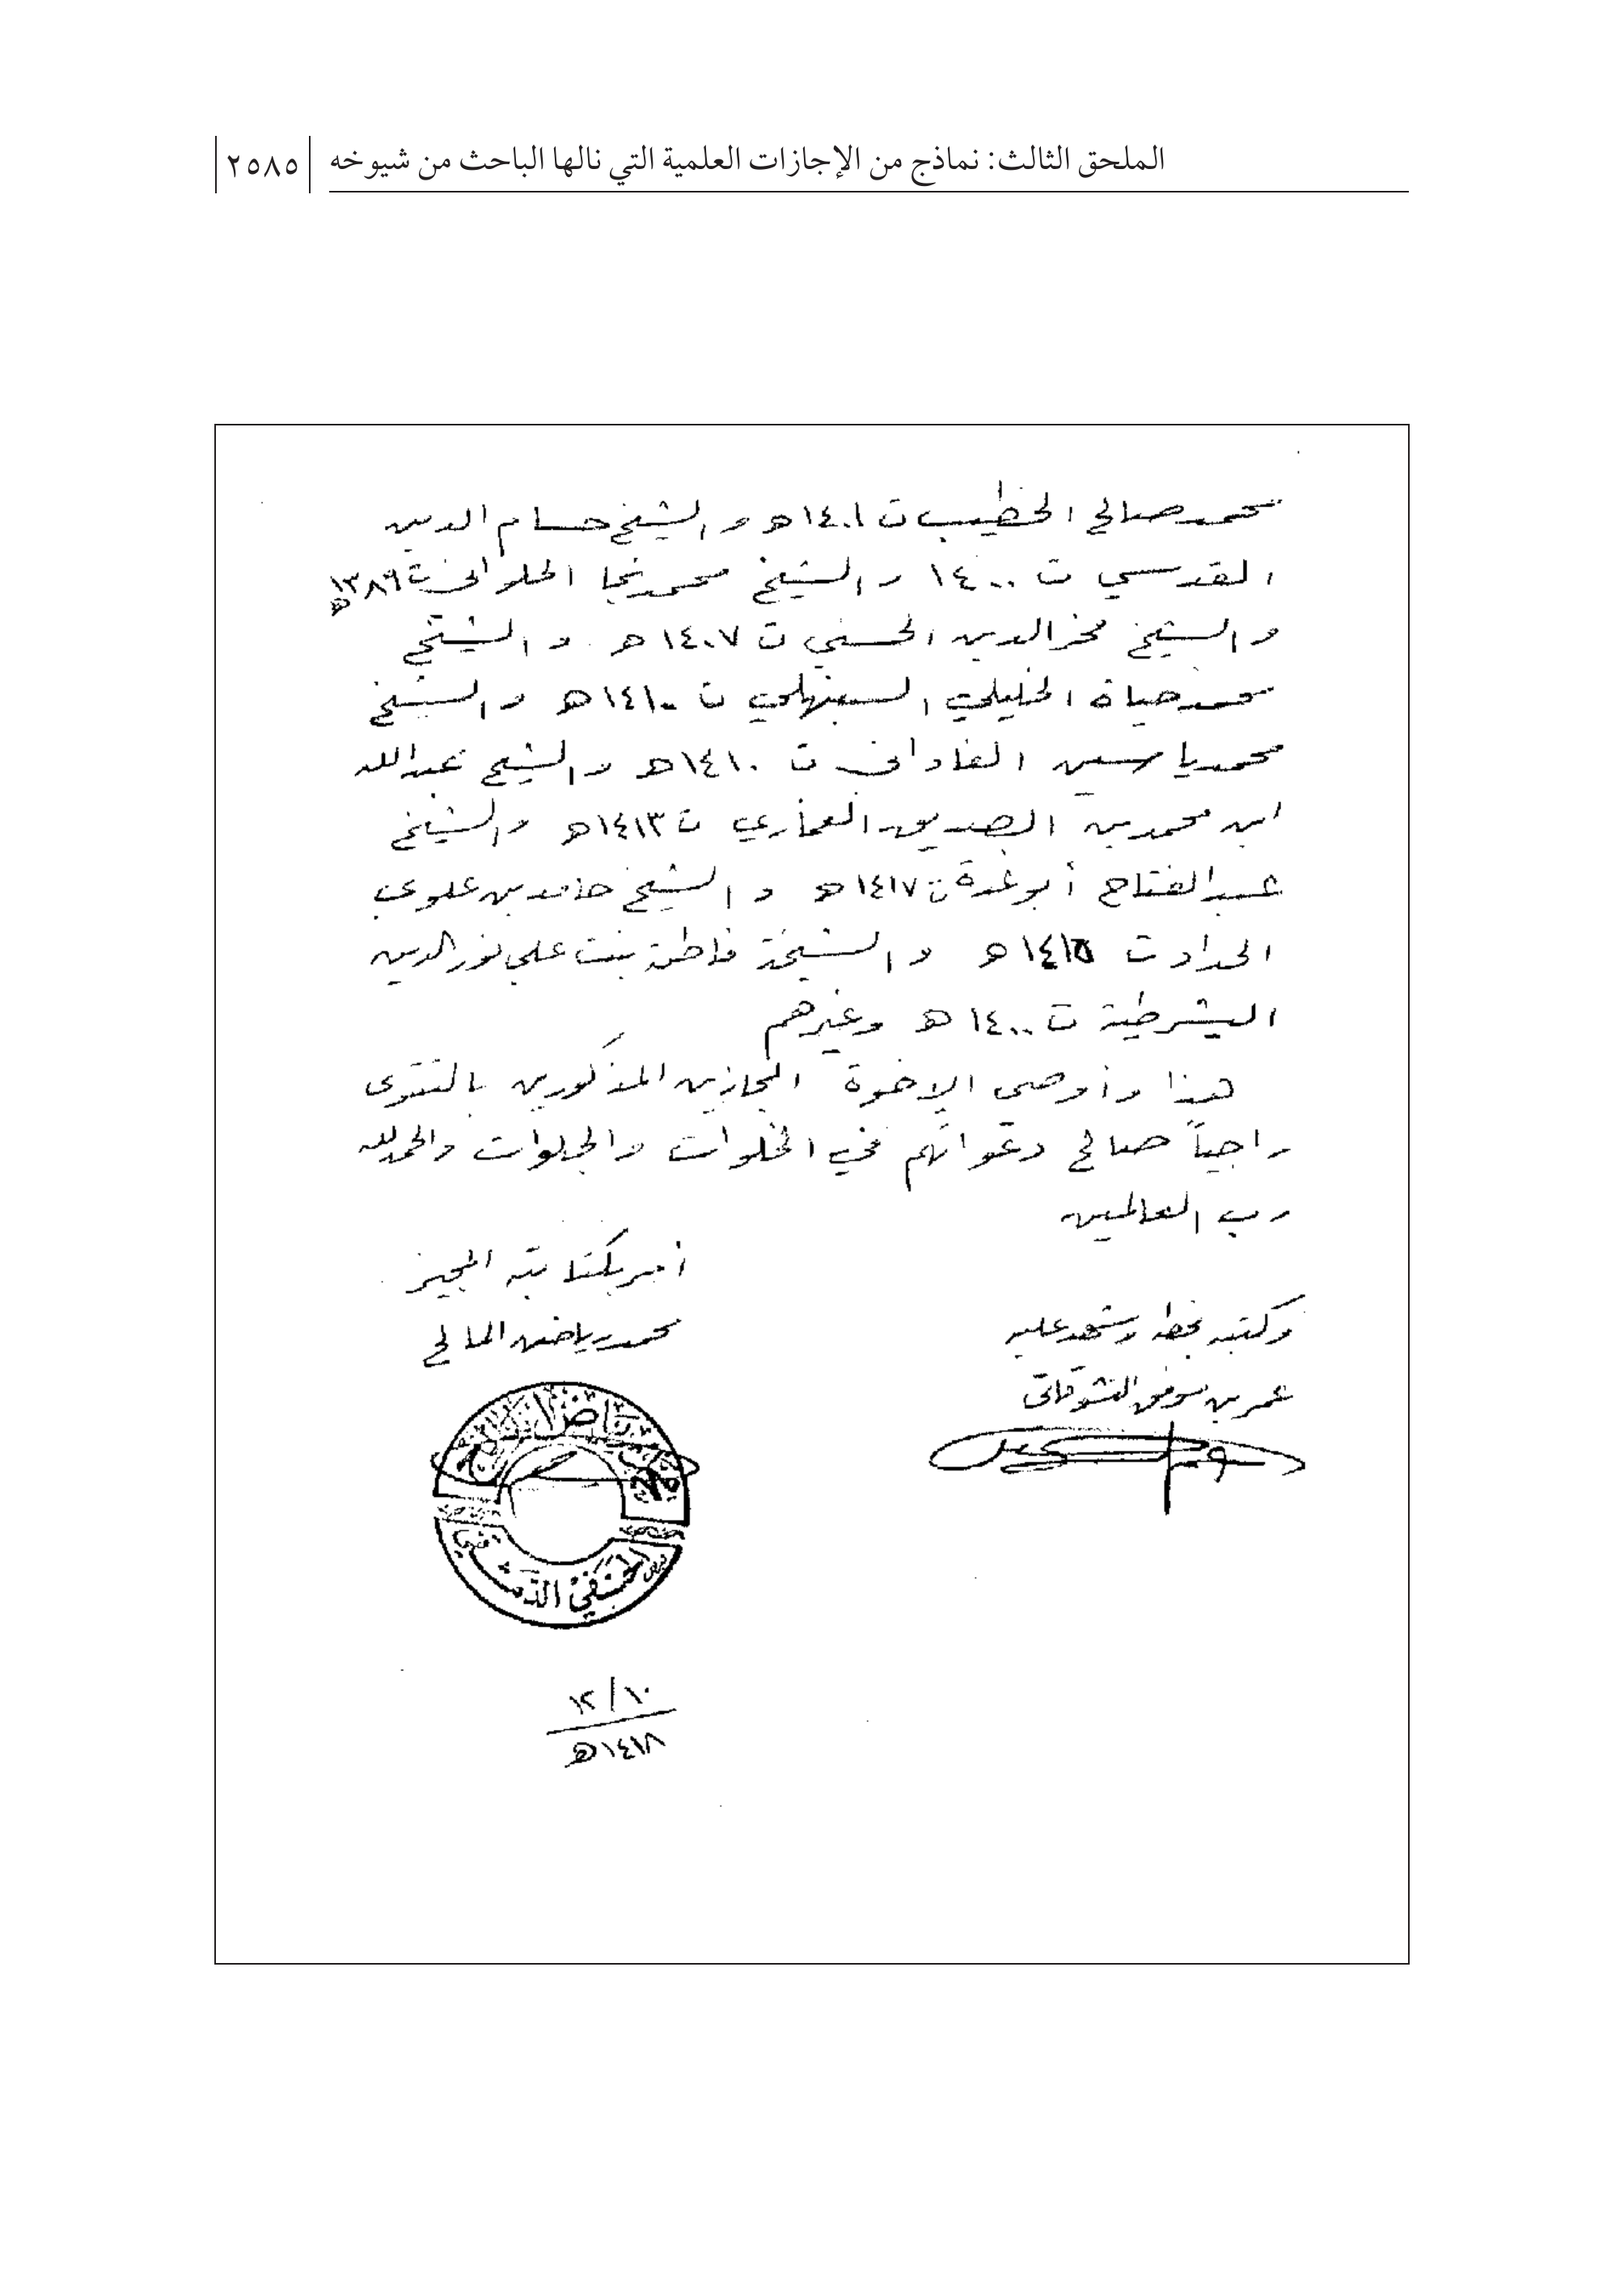 الملحق الثالث: نماذج من الإجازات العلمية التي نالها الباحث من شيوخه
٢٥٨٥
محمد صالح الخطيب ت ١٤٠١ هـ والشيخ حسام الدين
القدسي ت ١٤٠٠ والشيخ محمد نجا الحلواني ت ١٣٨٩ هـ
والشيخ فخر الدين الحسني ت ١٤٠٧ هـ والشيخ
محمد حياة الخليلي السنبهلي ت ١٤١٠ هـ والشيخ
محمد ياسين الفاداني ت ١٤١٠ هـ والشيخ عبد الله
ابن محمد بن الصديق الغماري ت ١٤١٣ هـ والشيخ
عبد الفتاح أبو غدة ت ١٤١٧ هـ والشيخ حامد بن علوي
الحداد ت ١٤١٥ هـ والشيخة فاطمة بنت علي نور الدين
اليشرطية ت ١٤٠٠ هـ وغيرهم
هذا وأوصي الإخوة المجازين المذكورين بالتقوى
راجياً صالح دعواتهم في الخلوات والجلوات والحمد لله
رب العالمين
أمر بكتابته المجيز
محمد رياض المالح
وكتبه بخطه وشهد عليه
عمر بن موفق النشوقاتي
الحنفي
١٠/١٢
١٤١٨ هـ